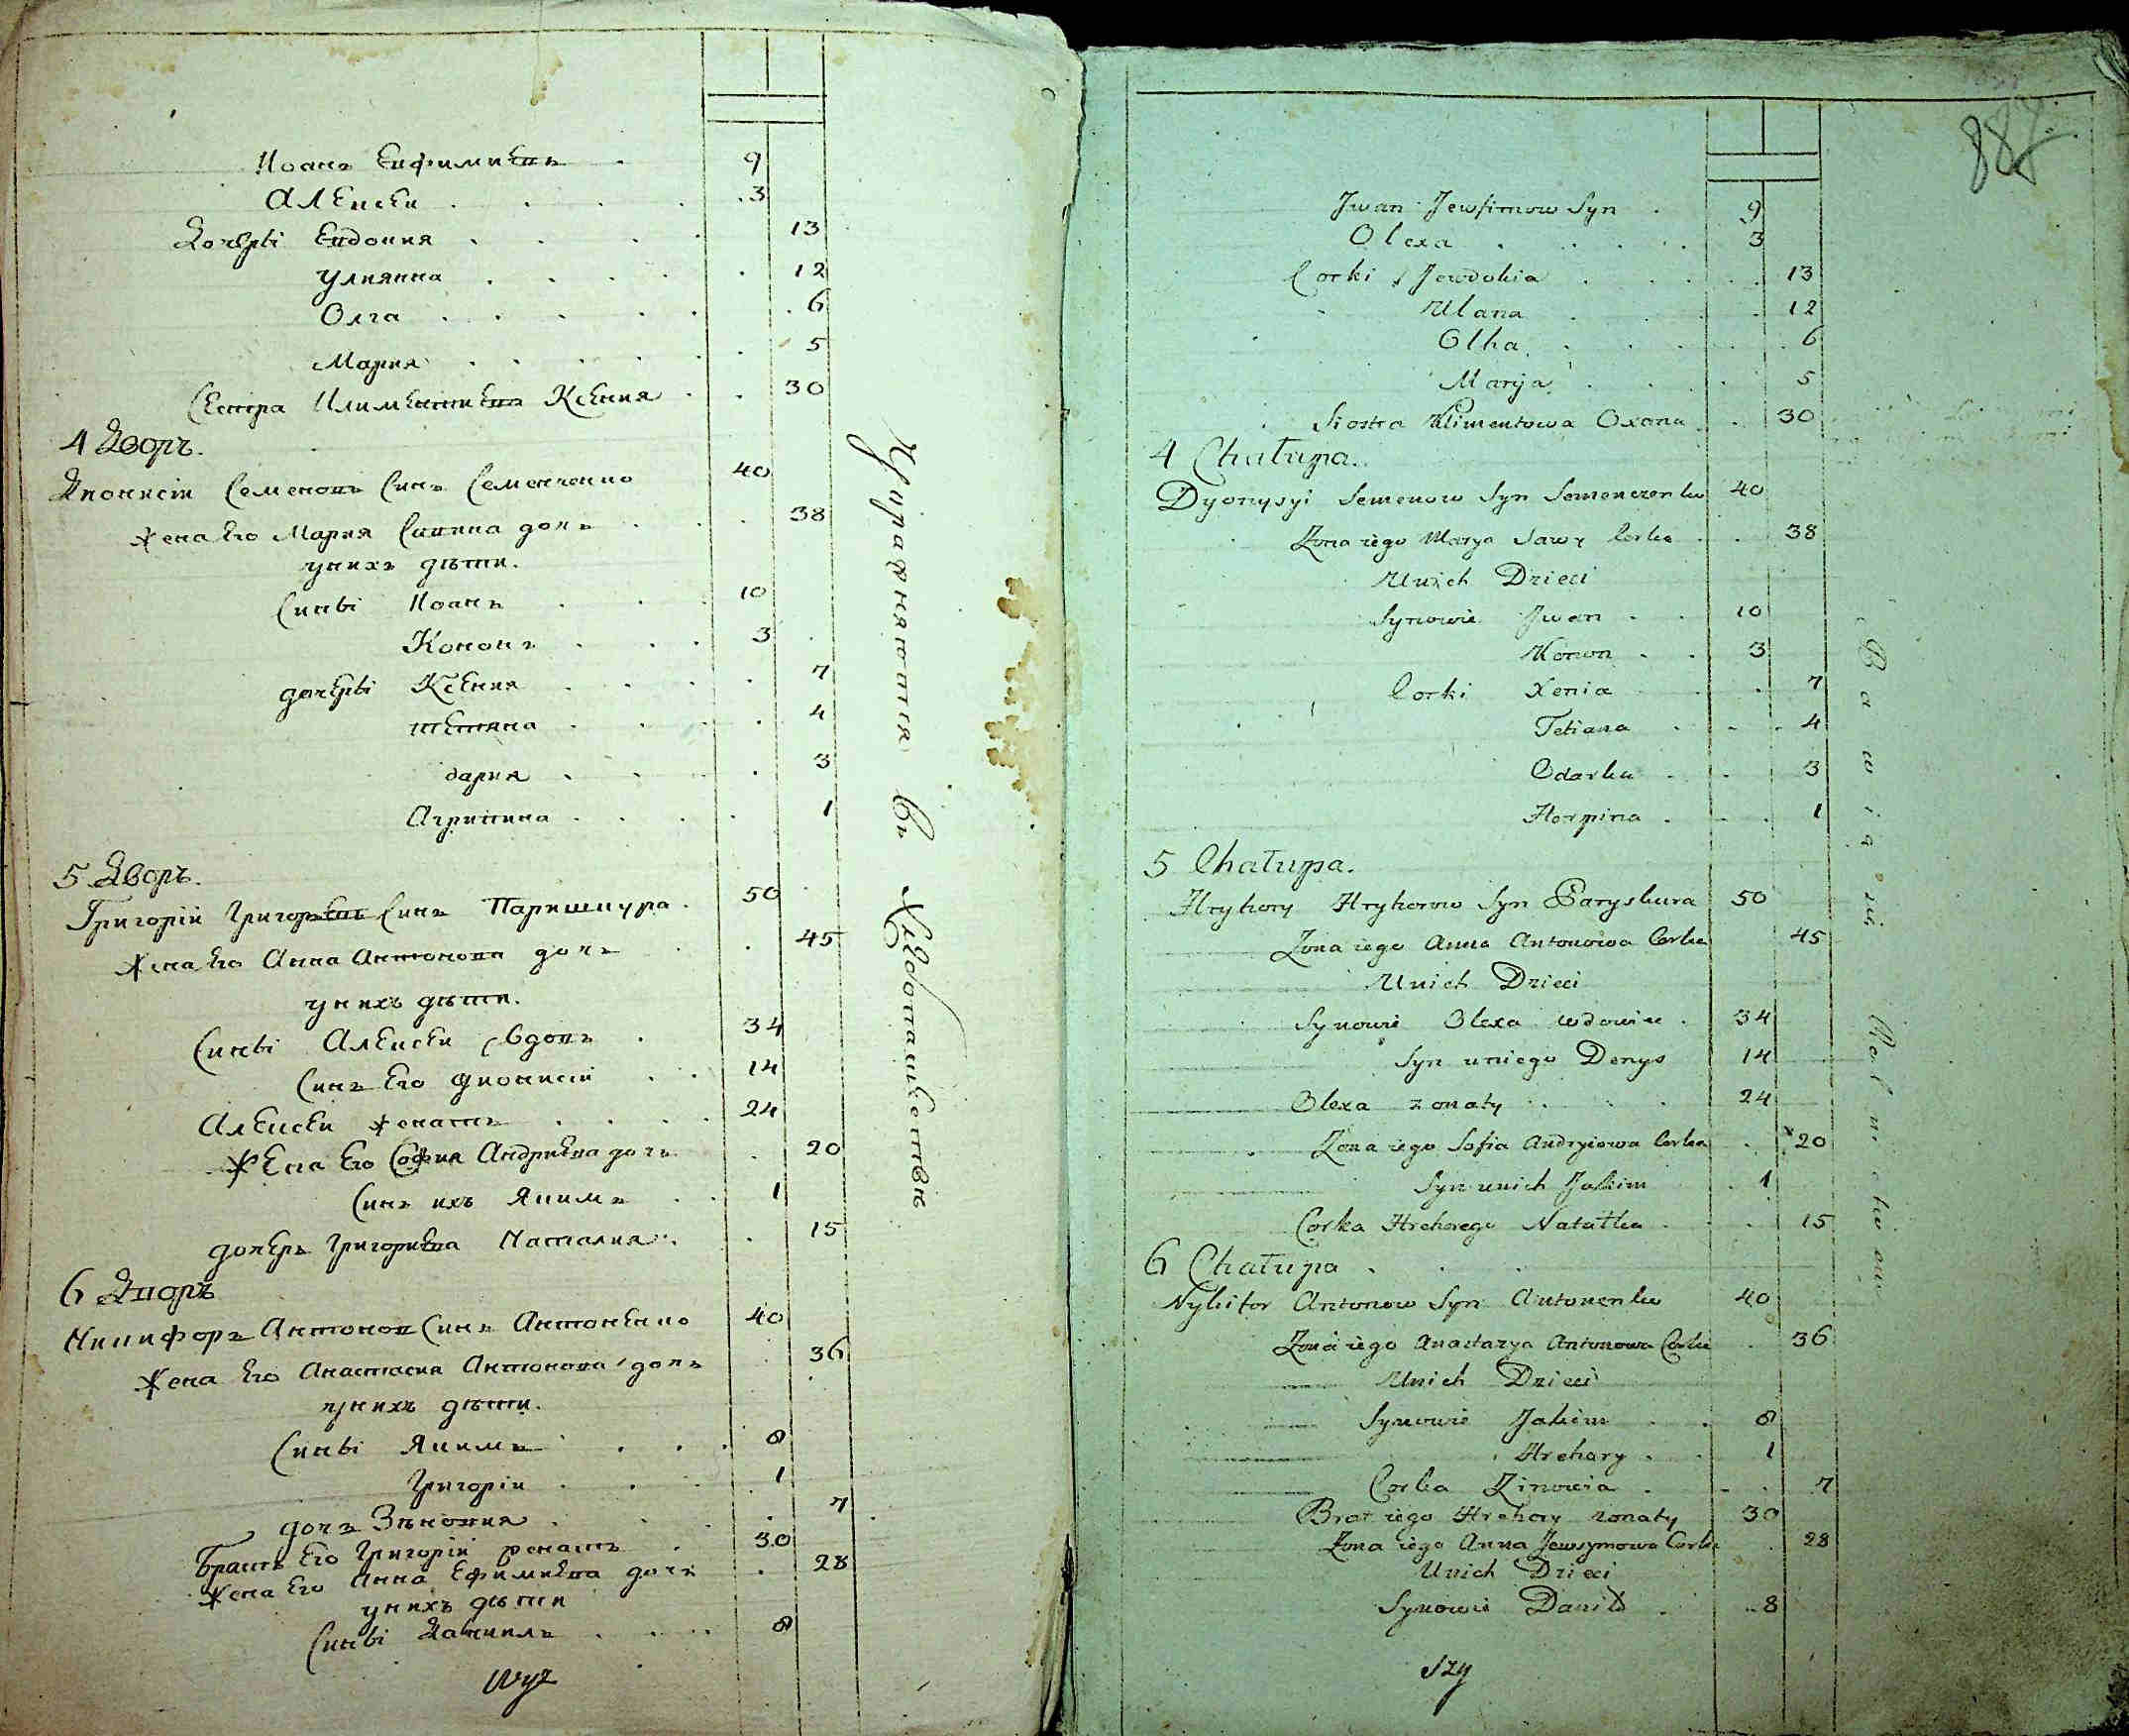 Иоанъ Евфимиевъ . 9
Алексеи . . . . . 3
Дочерѣ Евдокия . . . . 13
Улиянна . . . . . 12
Олга . . . . . . 6
Мария . . . . . . 5
Сестра Климентиева Ксения . . 30
4 Дворъ.
Дионисіи Семеновъ Синъ Семенченко 40
Жена Его Мария Савина дочь . . . 38
у нихъ дѣти.
Сины Иоанъ . . . 10
Кононъ . . . 3
дочеры Ксения . . . . 7
тетяна . . . . 4
дария . . . . 3
Агрипина . . . . 1
5 Дворъ.
Григорій Григориевъ Синъ Паришкура . 50
Жена Его Анна Антонова дочъ . . 45
у нихъ дѣти.
Сины Алексеи вдовъ . 34
Синъ Его Дионисіи . . 14
Алексеи женатъ . . . . 24
Жена Его София Андриева дочъ . 20
Синъ ихъ Якимъ . . 1
дочеръ Григориева Наталия . . 15
6 Дворъ
Никифоръ Антонов Синъ Антоненко 40
Жена Его Анастасия Антонова дочъ 36
у нихъ дѣти.
Сины Якимъ . . . 8
Григоріи . . . 1
дочъ Зѣновия . . . . 7
Братъ Его Григоріи женатъ . 30
Жена Его Анна Ефимиева дочъ . 28
у нихъ дѣти
Сины Даниилъ . . . . 8
въ
887
Jwan Jewfimow Syn . 9
Olexa . . . . . 3
Corki Jewdokia . . . . . 13
Ulana . . . . 12
Olha . . . . . 6
Marya . . . . 5
Siostra Klimentowa Oxana . . 30
4 Chałupa.
Dyonysyi Semenow Syn Semenczenko 40
Zona iego Marya Sawy Corka . . 38
Unich Dzieci
Synowie Jwan . . 10
Konon . . 3
Corki Xenia . . . 7
Tetiana . . . 4
Odarka . . . 3
Horpina . . . 1
5 Chałupa.
Hryhory Hryhorow Syn Paryskura 50
Zona iego Anna Antonowa Corka 45
Unich Dzieci
Synowie Olexa wdowiec . 34
Syn uniego Denys 14
Olexa zonaty . . . 24
Zona iego Sofia Andryiowa Corka . 20
Syn unich Jakim . 1
Corka Hrehorego Natałka . . . 15
6 Chałupa . . .
Nykifor Antonow Syn Antonenko 40
Zona iego Anastazya Antonowa Corka . 36
Unich Dzieci
Synowie Jakim . . 8
Hrehory . . 1
Corka Zinowia . . . 7
Brat iego Hrehory zonaty 30
Zona iego Anna Jewsymowa Corka . 28
Unich Dzieci
Synowie Daniło . 8
szy